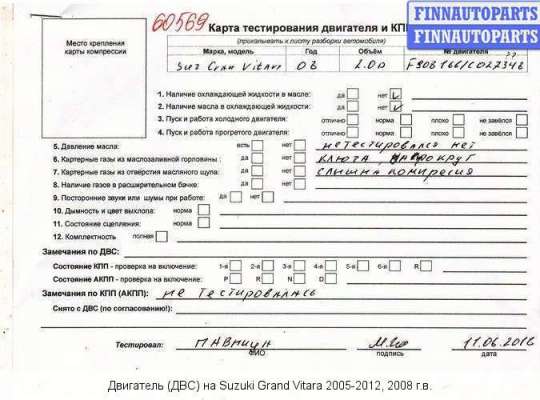 60569
Карта тестирования двигателя и КПП
FINNAUTOPARTS
FINNAUTOPARTS
(прикалывать к листу разборки автомобиля)
Место крепления
карты компрессии
Марка, модель Год Объём № двигателя
Suz Gran Vitara 08 2.0л
1. Наличие охлаждающей жидкости в масле: да нет
2. Наличие масла в охлаждающей жидкости: да нет
3. Пуск и работа холодного двигателя: отлично норма плохо не завёлся
4. Пуск и работа прогретого двигателя: отлично норма плохо не завёлся
5. Давление масла: есть нет не тестировался нет
6. Картерные газы из маслозаливной горловины: да нет ключа
7. Картерные газы из отверстия масляного щупа: да нет
8. Наличие газов в расширительном бачке: да нет
9. Посторонние звуки или шумы при работе: да нет
10. Дымность и цвет выхлопа: норма
11. Состояние сцепления: норма
12. Комплектность полная
Замечания по ДВС:
Состояние КПП - проверка на включение: 1-я 2-я 3-я 4-я 5-я 6-я R
Состояние АКПП - проверка на включение: P R N D
Замечания по КПП (АКПП): не тестировалась
Снято с ДВС (по согласованию!):
Тестировал: 11.06.2016
ФИО подпись дата
Двигатель (ДВС) на Suzuki Grand Vitara 2005-2012, 2008 г.в.